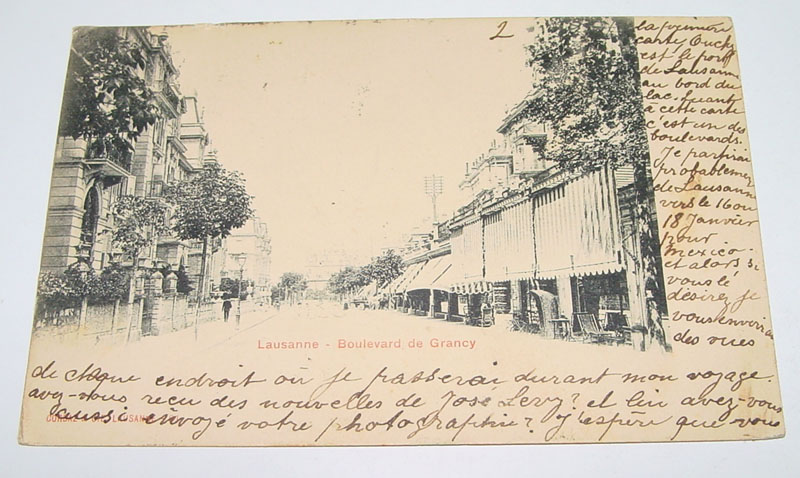 2
la première
carte, Ouchy
est le port
de Lausanne
au bord du
lac. Quant
à cette carte
c'est un des
boulevards.
Je partirai
probablement
de Lausanne
vers le 16 ou
18 Janvier
pour
Mexico.
et alors si
vous le
désirez je
vous enverrai
des vues
Lausanne - Boulevard de Grancy
de chaque endroit où je passerai durant mon voyage.
avez-vous reçu des nouvelles de Jose Levy? et lui avez-vous
aussi envoyé votre photographie? J'espère que vous
LAUSANNE